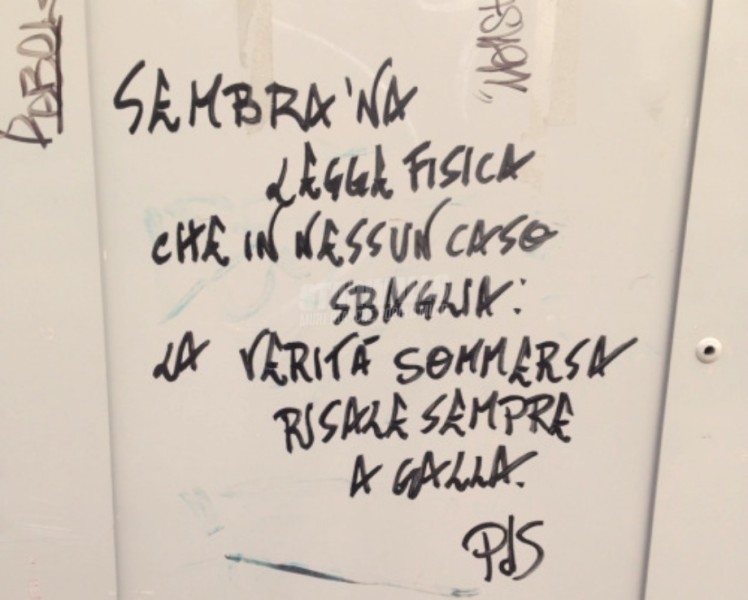 SEMBRA 'NA
LEGGE FISICA
CHE IN NESSUN CASO
SBAGLIA:
LA VERITÀ SOMMERSA
RISALE SEMPRE
A GALLA.
PdS